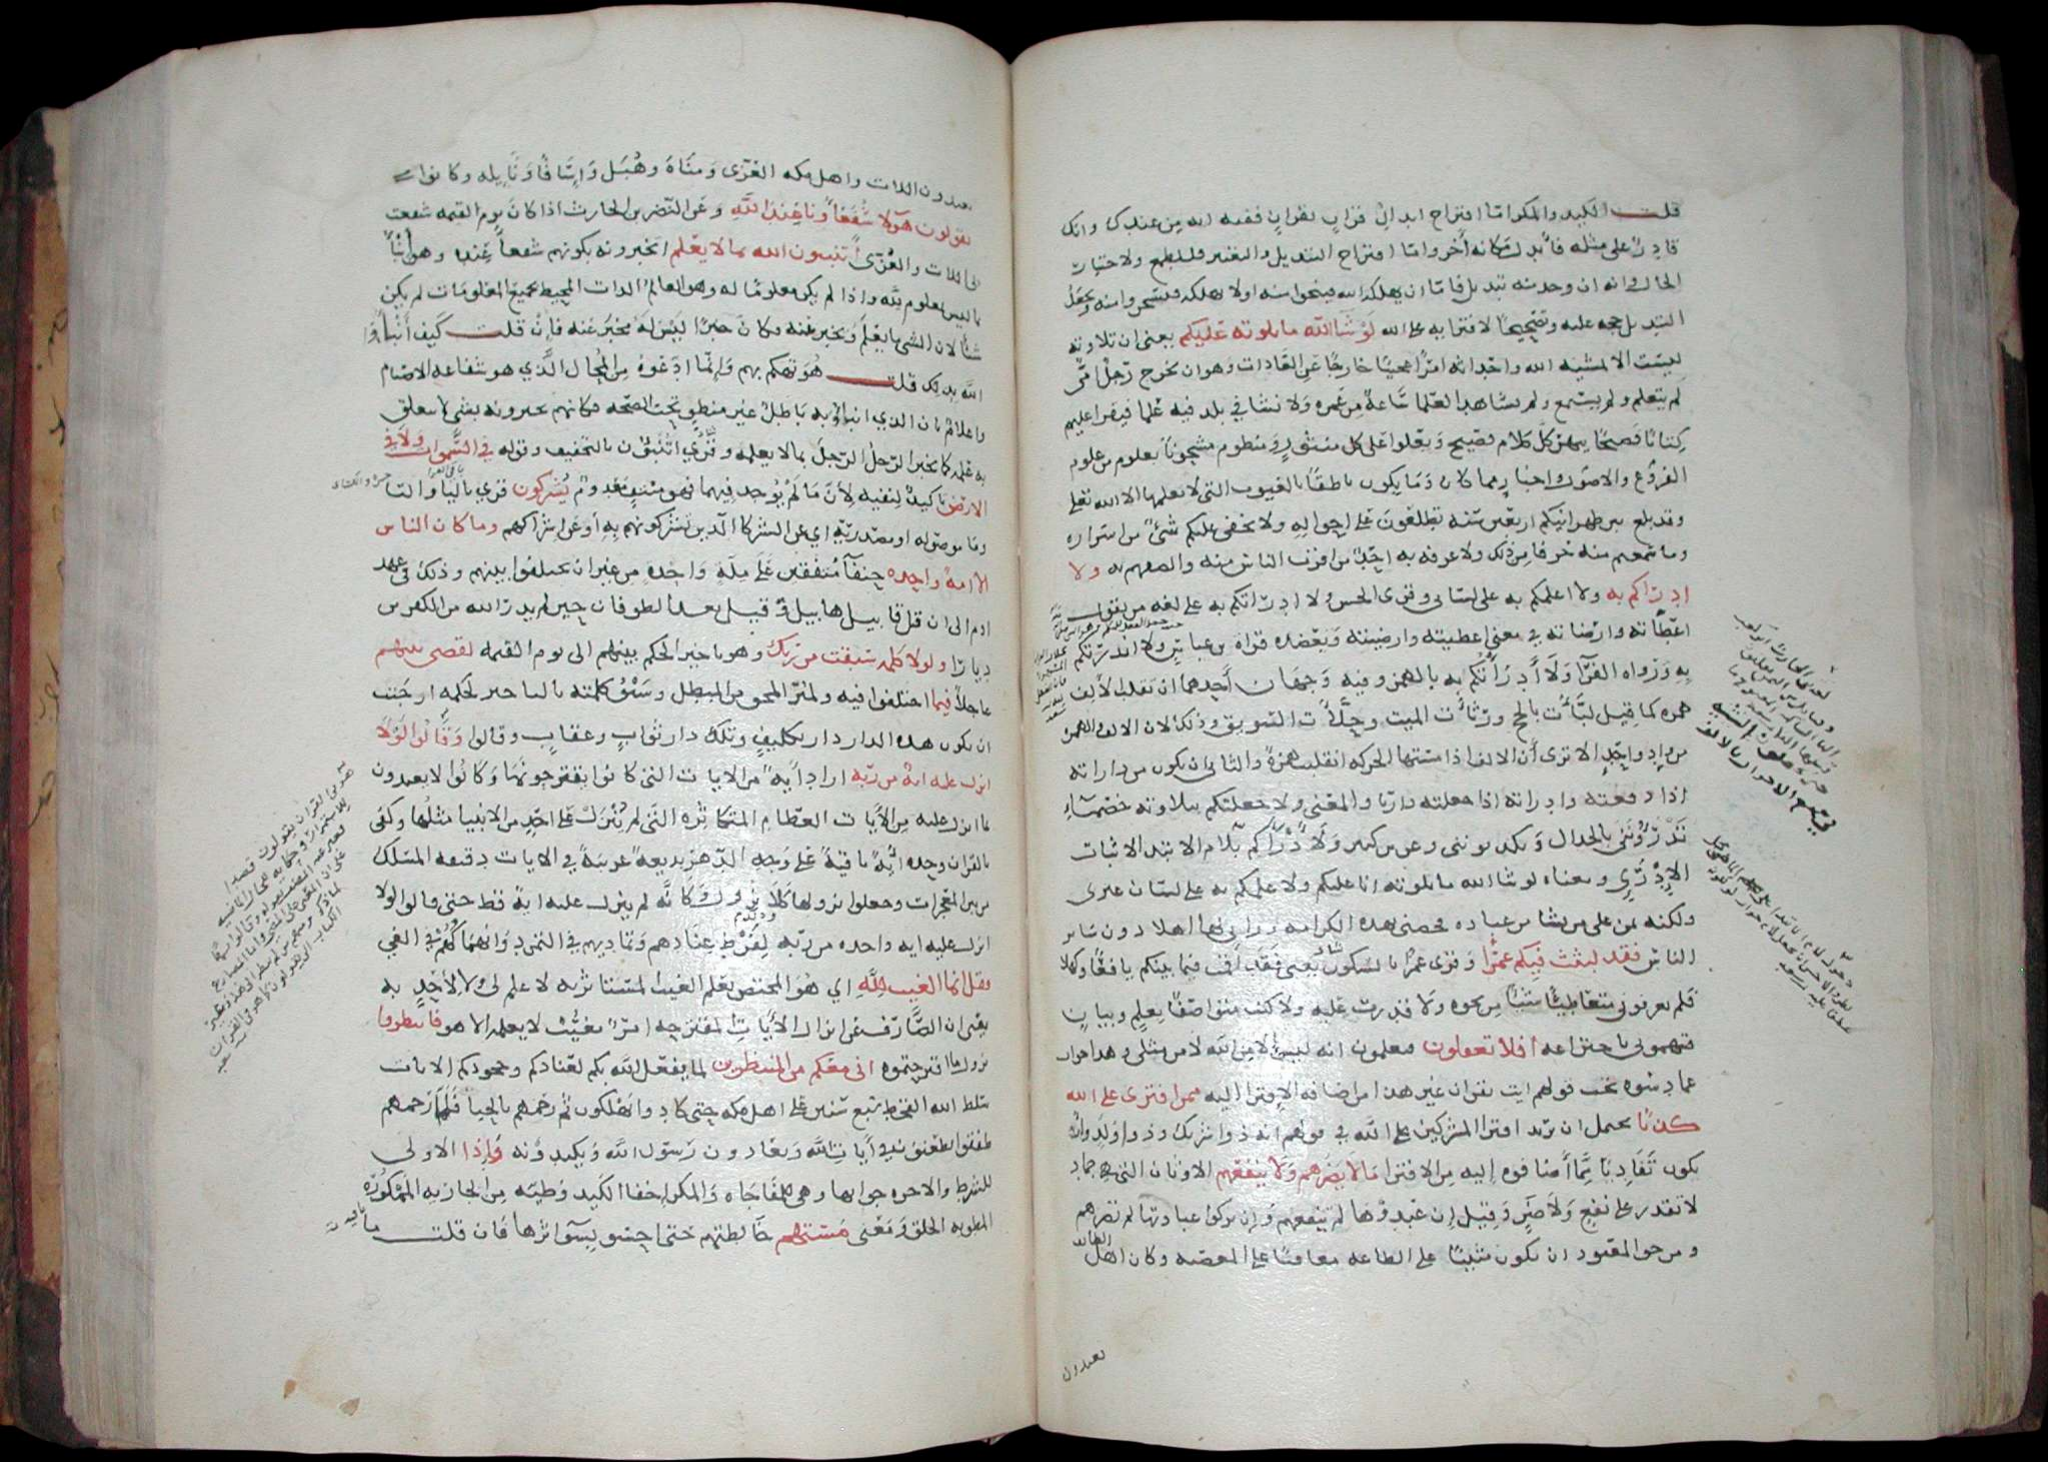 قلت الكيد والمكر اما اقتراح ابدال قران بقران ففيه انه من عندك وانك
قادر على مثله فابدل مكانه آخر واما اقتراح التبديل والتغيير فللطمع ولاختبار
الحال وانه ان وجد منه تبديل فاما ان يهلكه الله فينجوا منه اولا يهلكه فيسخروا منه ويجعل
التبديل حجه عليه وتصحيحا لافترايه على الله لو شا الله ما تلوته عليكم يعني ان تلاوته
ليست الا بمشيه الله واحداثه امرا عجيبا خارجا عن العادات وهو ان يخرج رجل امي
لم يتعلم ولم يستمع ولم يشاهد العلما ساعة من عمره ولا نشا في بلد فيه علما فيقرا عليهم
كتابا فصيحا يبهر كل كلام فصيح ويعلوا على كل منثور ومنظوم مشحونا بعلوم من علوم
الفروع والاصول واخبار مما كان وما يكون ناطقا بالغيوب التي لا يعلمها الا الله تعلى
وقد بلغ بين ظهرانيكم اربعين سنه تطلعون على احواله ولا يخفى عليكم شئ من اسراره
وما سمعتم منه حرفا من ذلك ولا عرفه به احد من اقرب الناس منه والصقهم به ولا
ادراكم به ولا اعلمكم به على لساني وقرى الحسن ولا ادراتكم به على لغه من يقول
اعطاته وارضاته في معنى اعطيته وارضيته وتعضده قراة بن عباس ولا انذرتكم
به ورواه الفرآ ولا أدرأتكم به بالهمز وفيه وجهان أحدهما ان تقلب الألف
همزه كما قيل لبأت بالحج ورثأت الميت وحلأت السويق وذلك لان الالف والهمزه
من واد واحد الا ترى أن الالف اذا مستها الحركه انقلبت همزة والثاني ان يكون من داراته
اذا دفعته وادراته اذا جعلته داريا والمعنى ولا جعلتكم بتلاوته خصمآء
تدرؤنني بالجدال وتكذبونني وعن بن كثير ولأدراكم بلام الابتدا لاثبات
الادرآ ومعناه لو شا الله ما تلوته انا عليكم ولاعلمكم به على لسان غيري
ولكنه يمن على من يشا من عباده فخصني بهذه الكرامه ورآني لها اهلا دون ساير
الناس فقد لبثت فيكم عمرا وقرى عمرا بالسكون يعني فقد أقمت فيما بينكم يافعا وكهلا
فلم تعرفوني متعاطيا شيئا من نحوه ولا قدرت عليه ولا كنت متواصفا بعلم وبيان
فتتهموني باختراعه افلا تعقلون فتعلمون انه ليس الا من الله لا من مثلي وهذا جواب
عما دسوه تحت قولهم ايت بقران غير هذا من اضافه الافترا اليه فمن افترى على الله
كذبا يحتمل ان يريد افترا المشركين على الله في قولهم انه ذو شريك وذو ولد وان
يكون تفاديا مما أضافوه إليه من الافترا ما لا يضرهم ولا ينفعهم الاوثان التي هي جماد
لا تقدر على نفع ولا ضر وقيل إن عبدوها لم تنفعهم وإن تركوا عبادتها لم تضرهم
ومن حق المعبود ان يكون مثيبا على الطاعه معاقبا على المعصيه وكان اهل الطايف
يعبدون
يعبدون اللات واهل مكه العزى ومناة وهبل وإسافا ونايله وكانوا
يقولون هؤلا شفعاؤنا عند الله وعن النضر بن الحارث اذا كان يوم القيمه شفعت
لي اللات والعزى أتنبيون الله بما لا يعلم اتخبرونه بكونهم شفعا عنده وهو أنبأ
بما ليس بمعلوم لله واذا لم يكن معلوما له وهو العالم الذات المحيط بجميع المعلومات لم يكن
شيا لان الشي ما يعلم ويخبر عنه فكان خبرا ليس له مخبر عنه فإن قلت كيف أنبأوا
الله بذلك قلت هو تهكم بهم وإنما ادعوه من المحال الذي هو شفاعه الاصنام
واعلام بان الذي انباوا به باطل غير منطو تحت الصحه فكانهم يخبرونه بشي لا يتعلق
به علمه كما يخبر الرجل الرجل بما لا يعلمه وقرئ أتنبئون بالتخفيف وقوله في السموات ولا في
الارض تاكيد لنفيه لأن ما لم يوجد فيهما فهو منتف معدوم يشركون قرى باليا والتا
وما موصوله او مصدريه اي عن الشركا الذين تشركونهم به أو عن إشراكهم وما كان الناس
الا امة واحده حنفآ متفقين على ملة واحده من غير ان يختلفوا بينهم وذلك في عهد
ادم الى ان قتل قابيل هابيل وقيل بعد الطوفان حين لم يذر الله من الكفرين
ديارا ولولا كلمه سبقت من ربك وهو تاخير الحكم بينهم الى يوم القيمه لقضى بينهم
عاجلا فيما اختلفوا فيه ولميز المحق من المبطل وسبق كلمته بالتاخير لحكمه اوجبت
ان يكون هذه الدار دار تكليف وتلك دار ثواب وعقاب وقالوا وقالوا لولا
انزل عليه اية من ربه ارادوا أية من الايات التي كانوا يقترحونها وكانوا لا يعتدون
بما انزل عليه من الأيات العظام المتكاثره التي لم ينزل على احد من الانبيا مثلها وكفى
بالقران وحده اية باقية على وجه الدهر بديعة غريبة في الايات دقيقه المسلك
من بين المعجزات وجعلوا نزولها كلا نزول وكانه لم ينزل عليه اية قط حتى قالوا لولا
انزل عليه ايه واحده من ربه لفرط عنادهم وتماديهم في التمرد وانهماكهم في الغي
فقل انما الغيب لله اي هو المختص بعلم الغيب المستاثر به لا علم لي ولا لأحد به
يعني ان الصارف عن انزال الأيات المقترحه امر مغيب لا يعلمه الا هو فانتظروا
نزول ما اقترحتموه اني معكم من المنتظرين لما يفعل الله بكم لعنادكم وجحودكم الايات
سلط الله القحط سبع سنين على اهل مكه حتى كادوا يهلكون ثم رحمهم بالحيا فلما رحمهم
طفقوا يطعنون في أيات الله ويعادون رسول الله ويكيدونه وإذا الاولى
للشرط والاخره جوابها وهي للمفاجاه والمكر إخفا الكيد وطيه من الجاريه الممكوره
المطويه الخلق ومعنى مستهم خالطتهم حتى احسو بسوء اثرها فان قلت ما